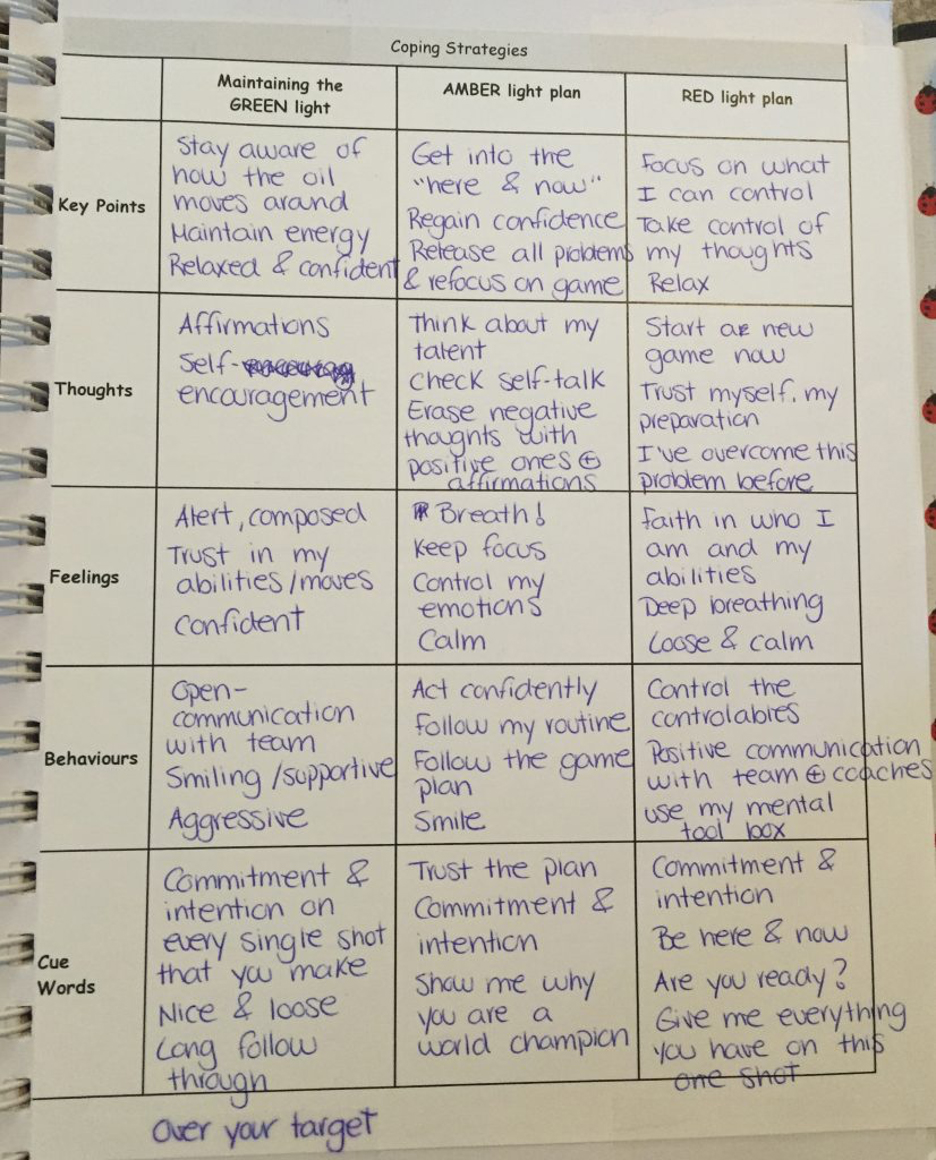 Coping Strategies
Maintaining the
GREEN light
AMBER light plan
RED light plan
Key Points
Stay aware of
how the oil
moves around
Maintain energy
Relaxed & confident
Get into the
"here & now"
Regain confidence
Release all problems
& refocus on game
Focus on what
I can control
Take control of
my thoughts
Relax
Thoughts
Affirmations
Self-
encouragement
Think about my
talent
check self-talk
Erase negative
thoughts with
positive ones ⊕
affirmations
Start a new
game now
Trust myself, my
preparation
I've overcome this
problem before
Feelings
Alert, composed
Trust in my
abilities/moves
Confident
Breath!
Keep focus
Control my
emotions
Calm
Faith in who I
am and my
abilities
Deep breathing
Loose & calm
Behaviours
Open-
communication
with team
Smiling/supportive
Aggressive
Act confidently
Follow my routine
Follow the game
plan
Smile
Control the
controlables
Positive communication
with team ⊕ coaches
use my mental
tool box
Cue
Words
Commitment &
intention on
every single shot
that you make
Nice & loose
Long follow
through
over your target
Trust the plan
Commitment &
intention
Show me why
you are a
world champion
Commitment &
intention
Be here & now
Are you ready?
Give me everything
you have on this
one shot